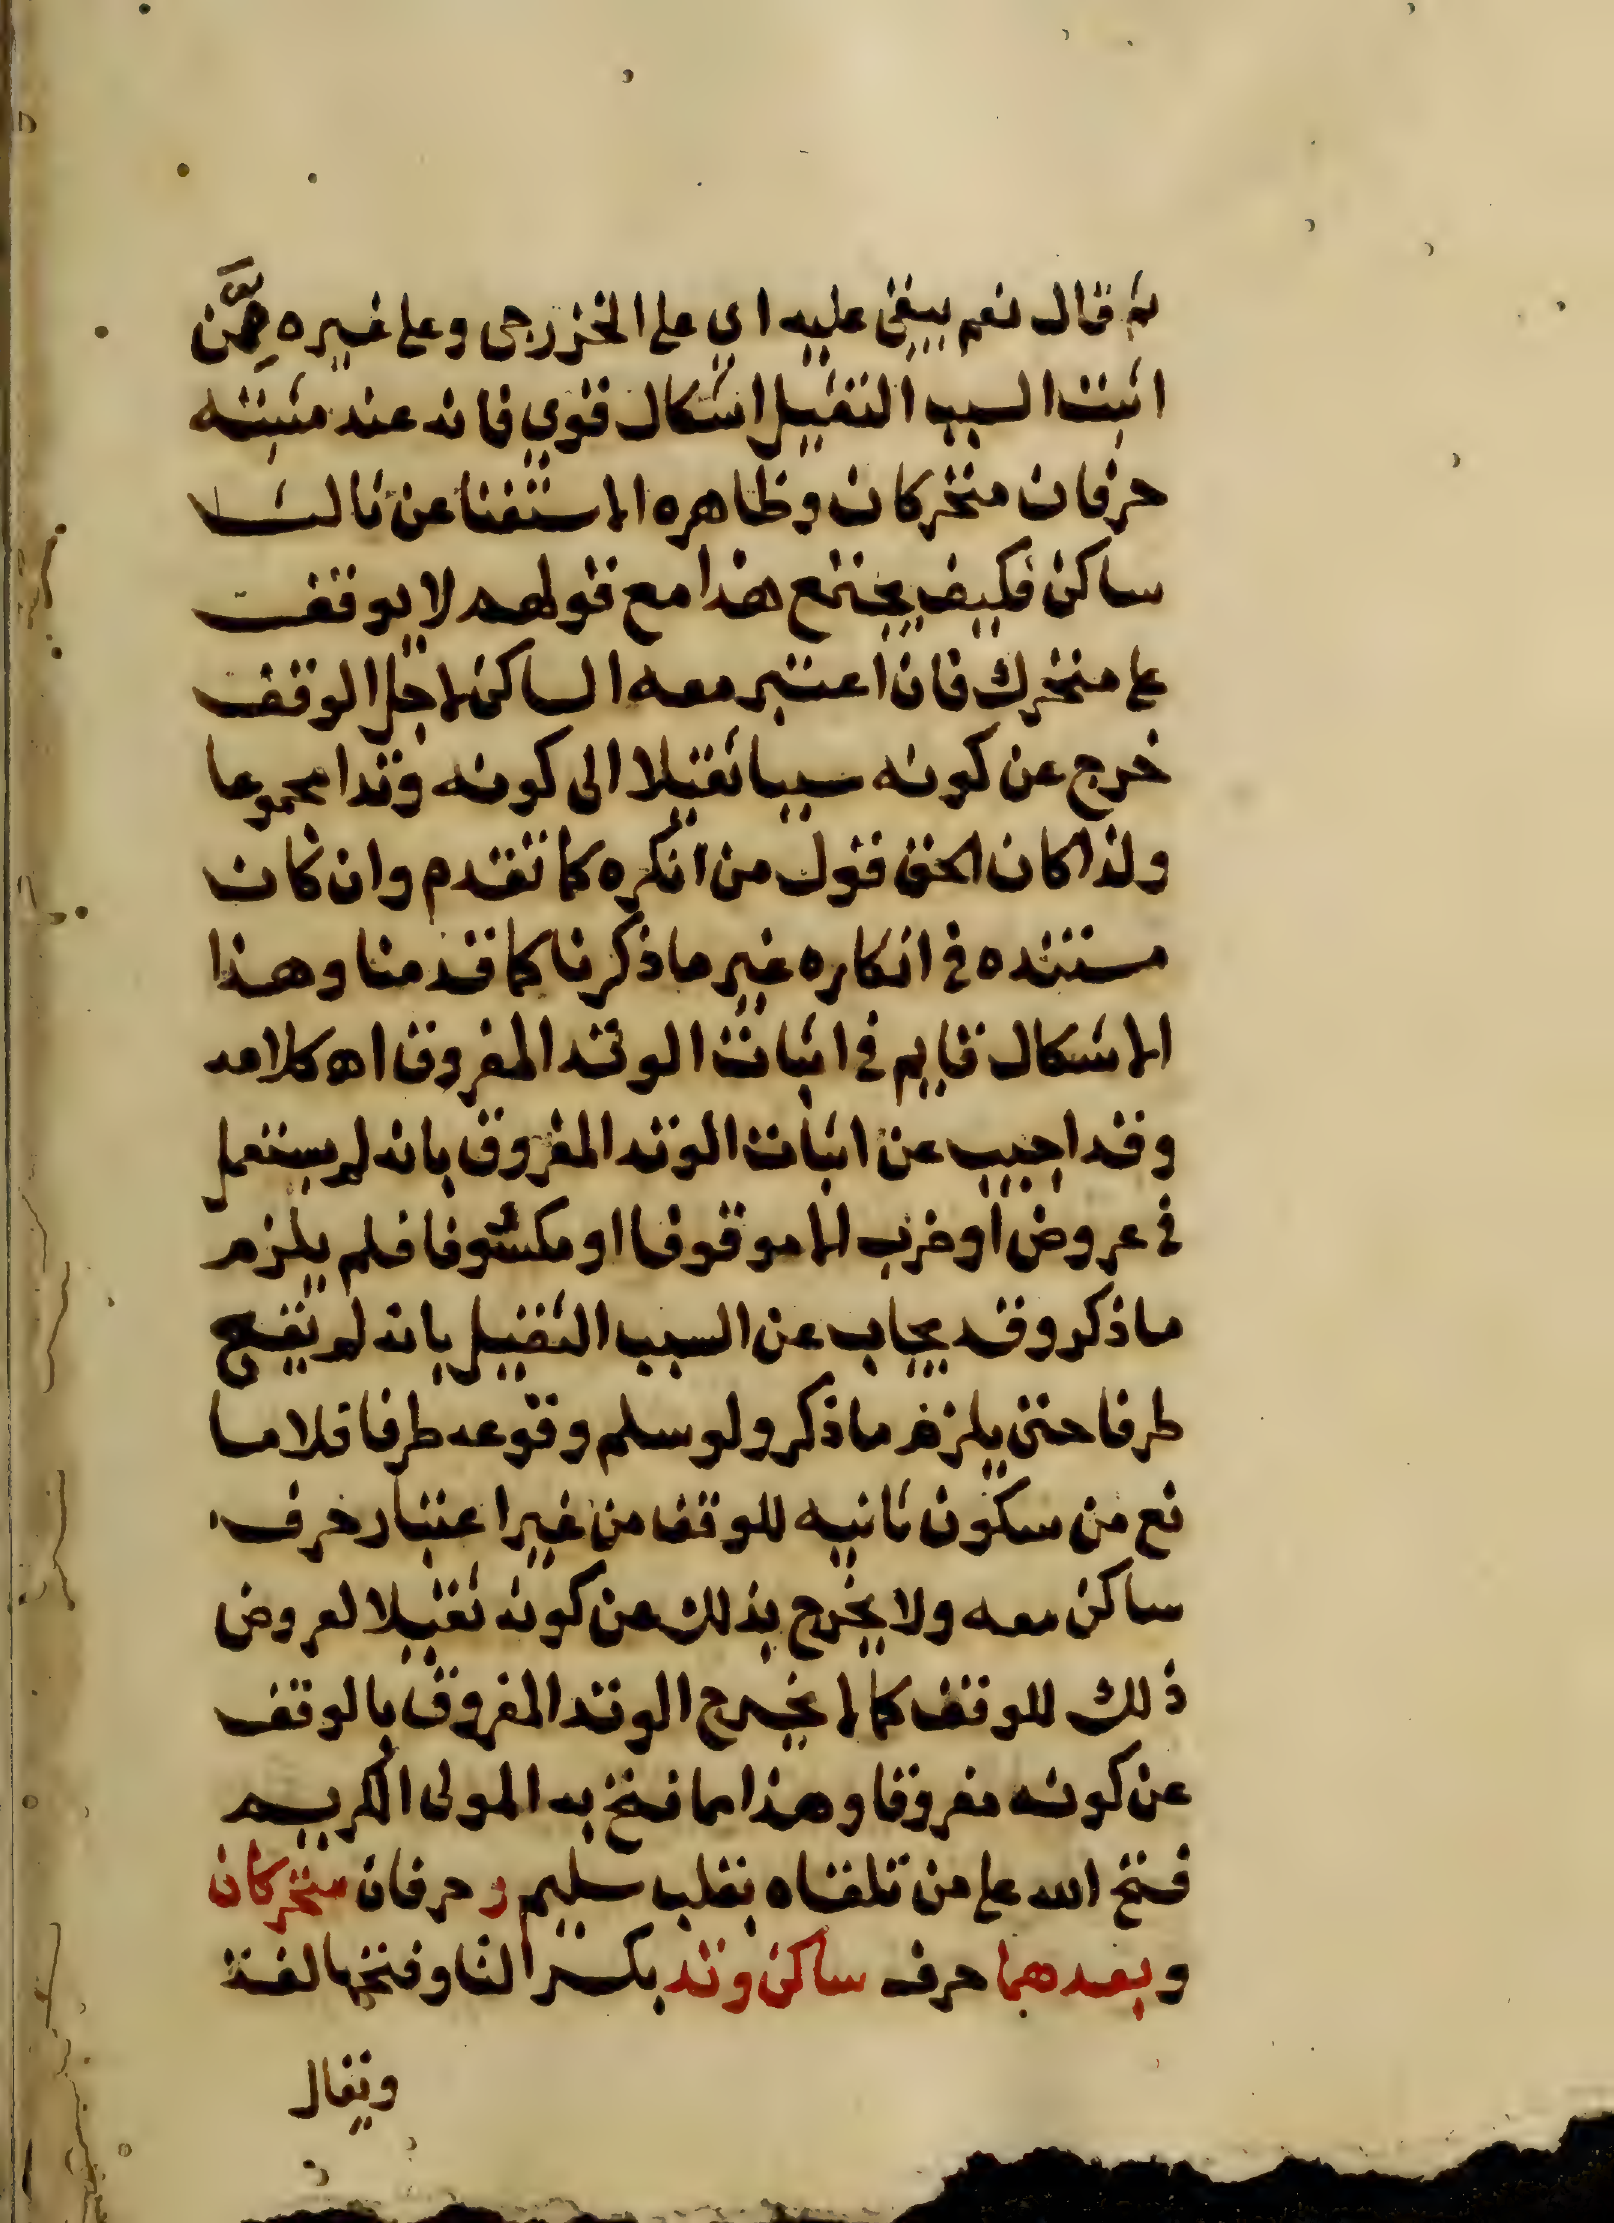 ثم قال نعم يبقى عليه اي على الخزرجي وعلى غيره ممن
اثبت السبب الثقيل اشكال قوي فانه عند مثبته
حرفان متحركان وظاهره الاستغنا عن ثالث
ساكن فكيف يجتمع هذا مع قولهم لا يوقف
على متحرك فان اعتبر معه الساكن لاجل الوقف
خرج عن كونه سببا ثقيلا الى كونه وتدا مجموعا
ولذا كان الحق قول من انكره كما تقدم وان كان
مستنده في انكاره غير ما ذكرنا كما قدمنا وهذا
الاشكال قايم في اثبات الوتد المفروق اه كلامه
وقد اجيب عن اثبات الوتد المفروق بانه لم يستعمل
في عروض او ضرب الا موقوفا او مكشوفا فلم يلزم
ما ذكر وقد يجاب عن السبب الثقيل بانه لم يقع
طرفا حتى يلزم ما ذكر ولو سلم وقوعه طرفا فلا ما
نع من سكون ثانيه للوقف من غير اعتبار حرف
ساكن معه ولا يخرج بذلك عن كونه ثقيلا لعروض
ذلك للوقف كما لا يخرج الوتد المفروق بالوقف
عن كونه مفروقا وهذا مما فتح به المولى الكريم
فتح الله على من تلقاه بقلب سليم و حرفان متحركان
وبعدهما حرف ساكن وتد بكسر التا وفتحها لغة
ويقال